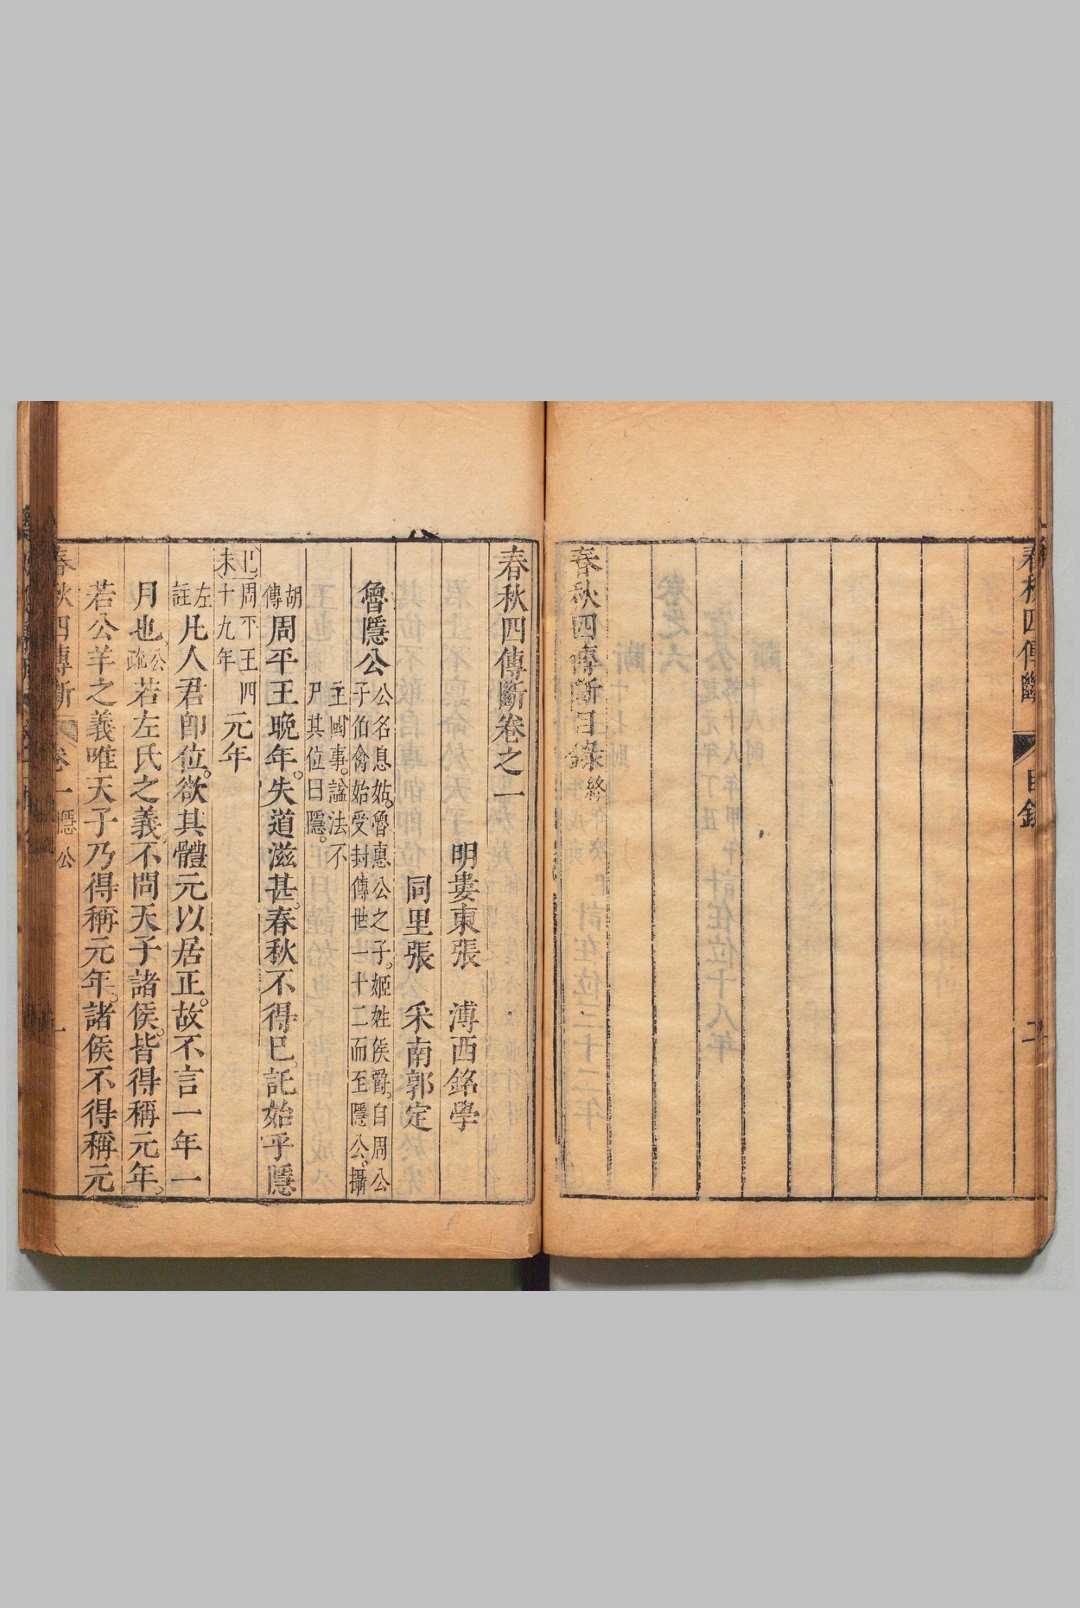 春秋四傳斷目錄終
春秋四傳斷
目錄
二
春秋四傳斷卷之一
明婁東張 溥西銘學
同里張 采南郭定
魯隱公公名息姑。魯惠公之子。姬姓侯爵。自周公
子伯禽始受封傳世一十二而至隱公。攝
主國事。諡法不
尸其位曰隱。
胡傳周平王晚年。失道滋甚。春秋不得已。託始乎隱
己未周平王四十九年元年
左註凡人君即位。欲其體元以居正。故不言一年一
月也公疏若左氏之義不問天子諸侯。皆得稱元年。
若公羊之義唯天子乃得稱元年。諸侯不得稱元
春秋四傳斷
卷一
隱公
一